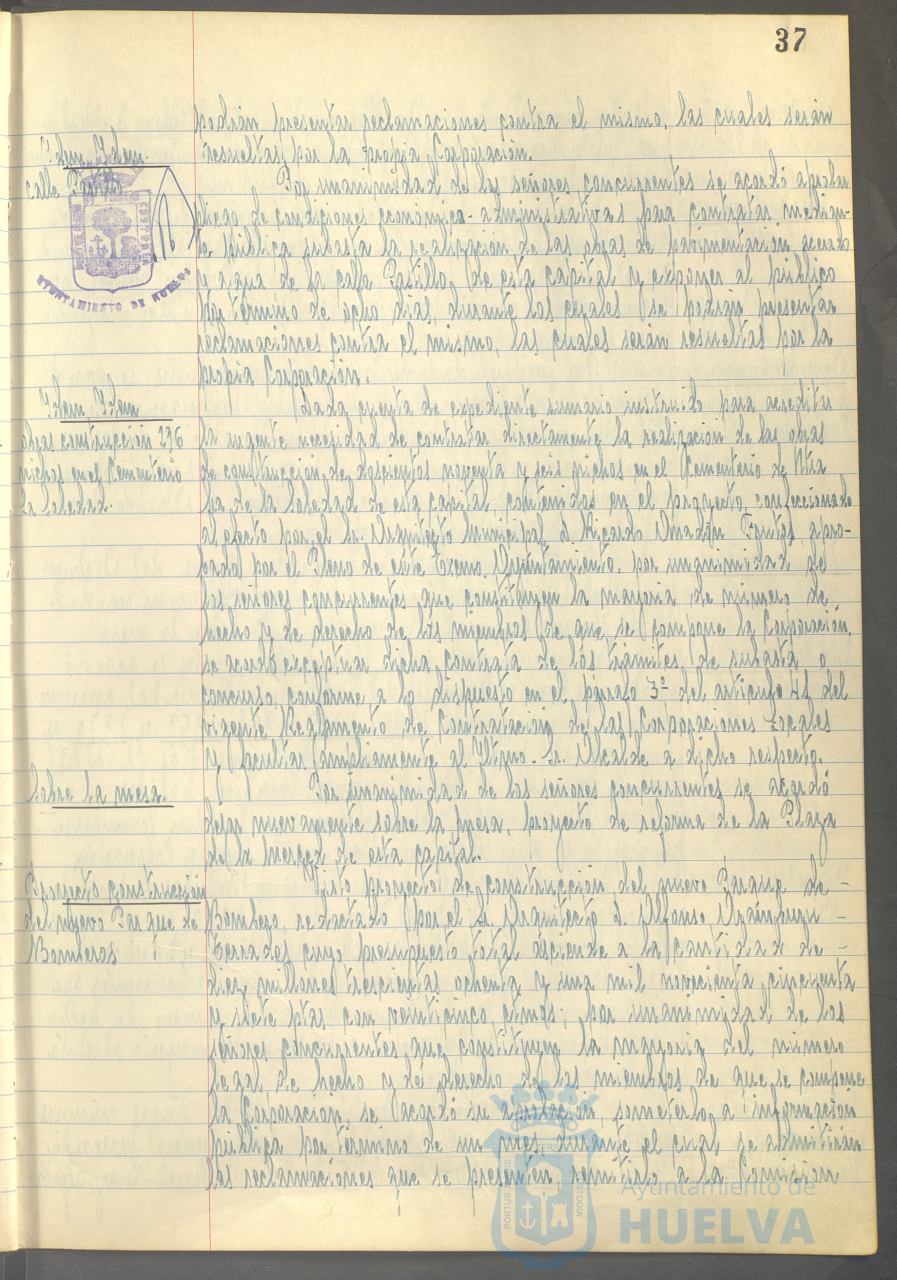 37
podrán presentar reclamaciones contra el mismo, las cuales serán
resueltas por la propia Corporación.
Idem, Idem.
calle Pastillo
Por unanimidad de los señores concurrentes se acordó aprobar
pliego de condiciones económico-administrativas para contratar median-
te pública subasta la realización de las obras de pavimentación, acerado
y agua de la calle Pastillo, de esta capital y exponer al público
por término de ocho días, durante los cuales se podrán presentar
reclamaciones contra el mismo, las cuales serán resueltas por la
propia Corporación.
AYUNTAMIENTO DE HUELVA
Idem, Idem
obras construcción 296
nichos en el Cementerio
La Soledad.
Dada cuenta de expediente sumario instruido para acreditar
la urgente necesidad de contratar directamente la realización de las obras
de construcción de doscientos noventa y seis nichos en el Cementerio de Ntra
Sra de la Soledad de esta capital, contenidos en el proyecto confeccionado
al efecto por el Sr. Arquitecto Municipal d. Ricardo Anadón Frutos, apro-
bado por el Pleno de este Excmo. Ayuntamiento, por unanimidad de
los señores concurrentes, que constituyen la mayoría de número de
hecho y de derecho de los miembros de que se compone la Corporación,
se acordó exceptuar dicha contrata de los trámites de subasta o
concurso, conforme a lo dispuesto en el párrafo 3º del artículo 41 del
vigente Reglamento de Contratación de las Corporaciones Locales
y facultar ampliamente al Iltmo. Sr. Alcalde a dicho respecto.
Sobre la mesa.
Por unanimidad de los señores concurrentes se acordó
dejar nuevamente sobre la mesa, proyecto de reforma de la Plaza
de la Merced de esta capital.
Proyecto construcción
del nuevo Parque de
Bomberos
Visto proyecto de construcción del nuevo Parque de -
Bombero, redactado por el Sr. Arquitecto d. Alfonso Aramburu -
Terrades cuyo presupuesto total asciende a la cantidad de -
diez millones trescientas ochenta y una mil novecienta cincuenta
y siete ptas con veinticinco ctmos; por unanimidad de los
señores concurrentes, que constituyen la mayoría del número
legal de hecho y de derecho de los miembros de que se compone
la Corporación, se acordó su aprobación, someterlo a información
pública por término de un mes, durante el cual se admitirán
las reclamaciones que se presenten, remitirlo a la Comisión
Ayuntamiento de
HUELVA